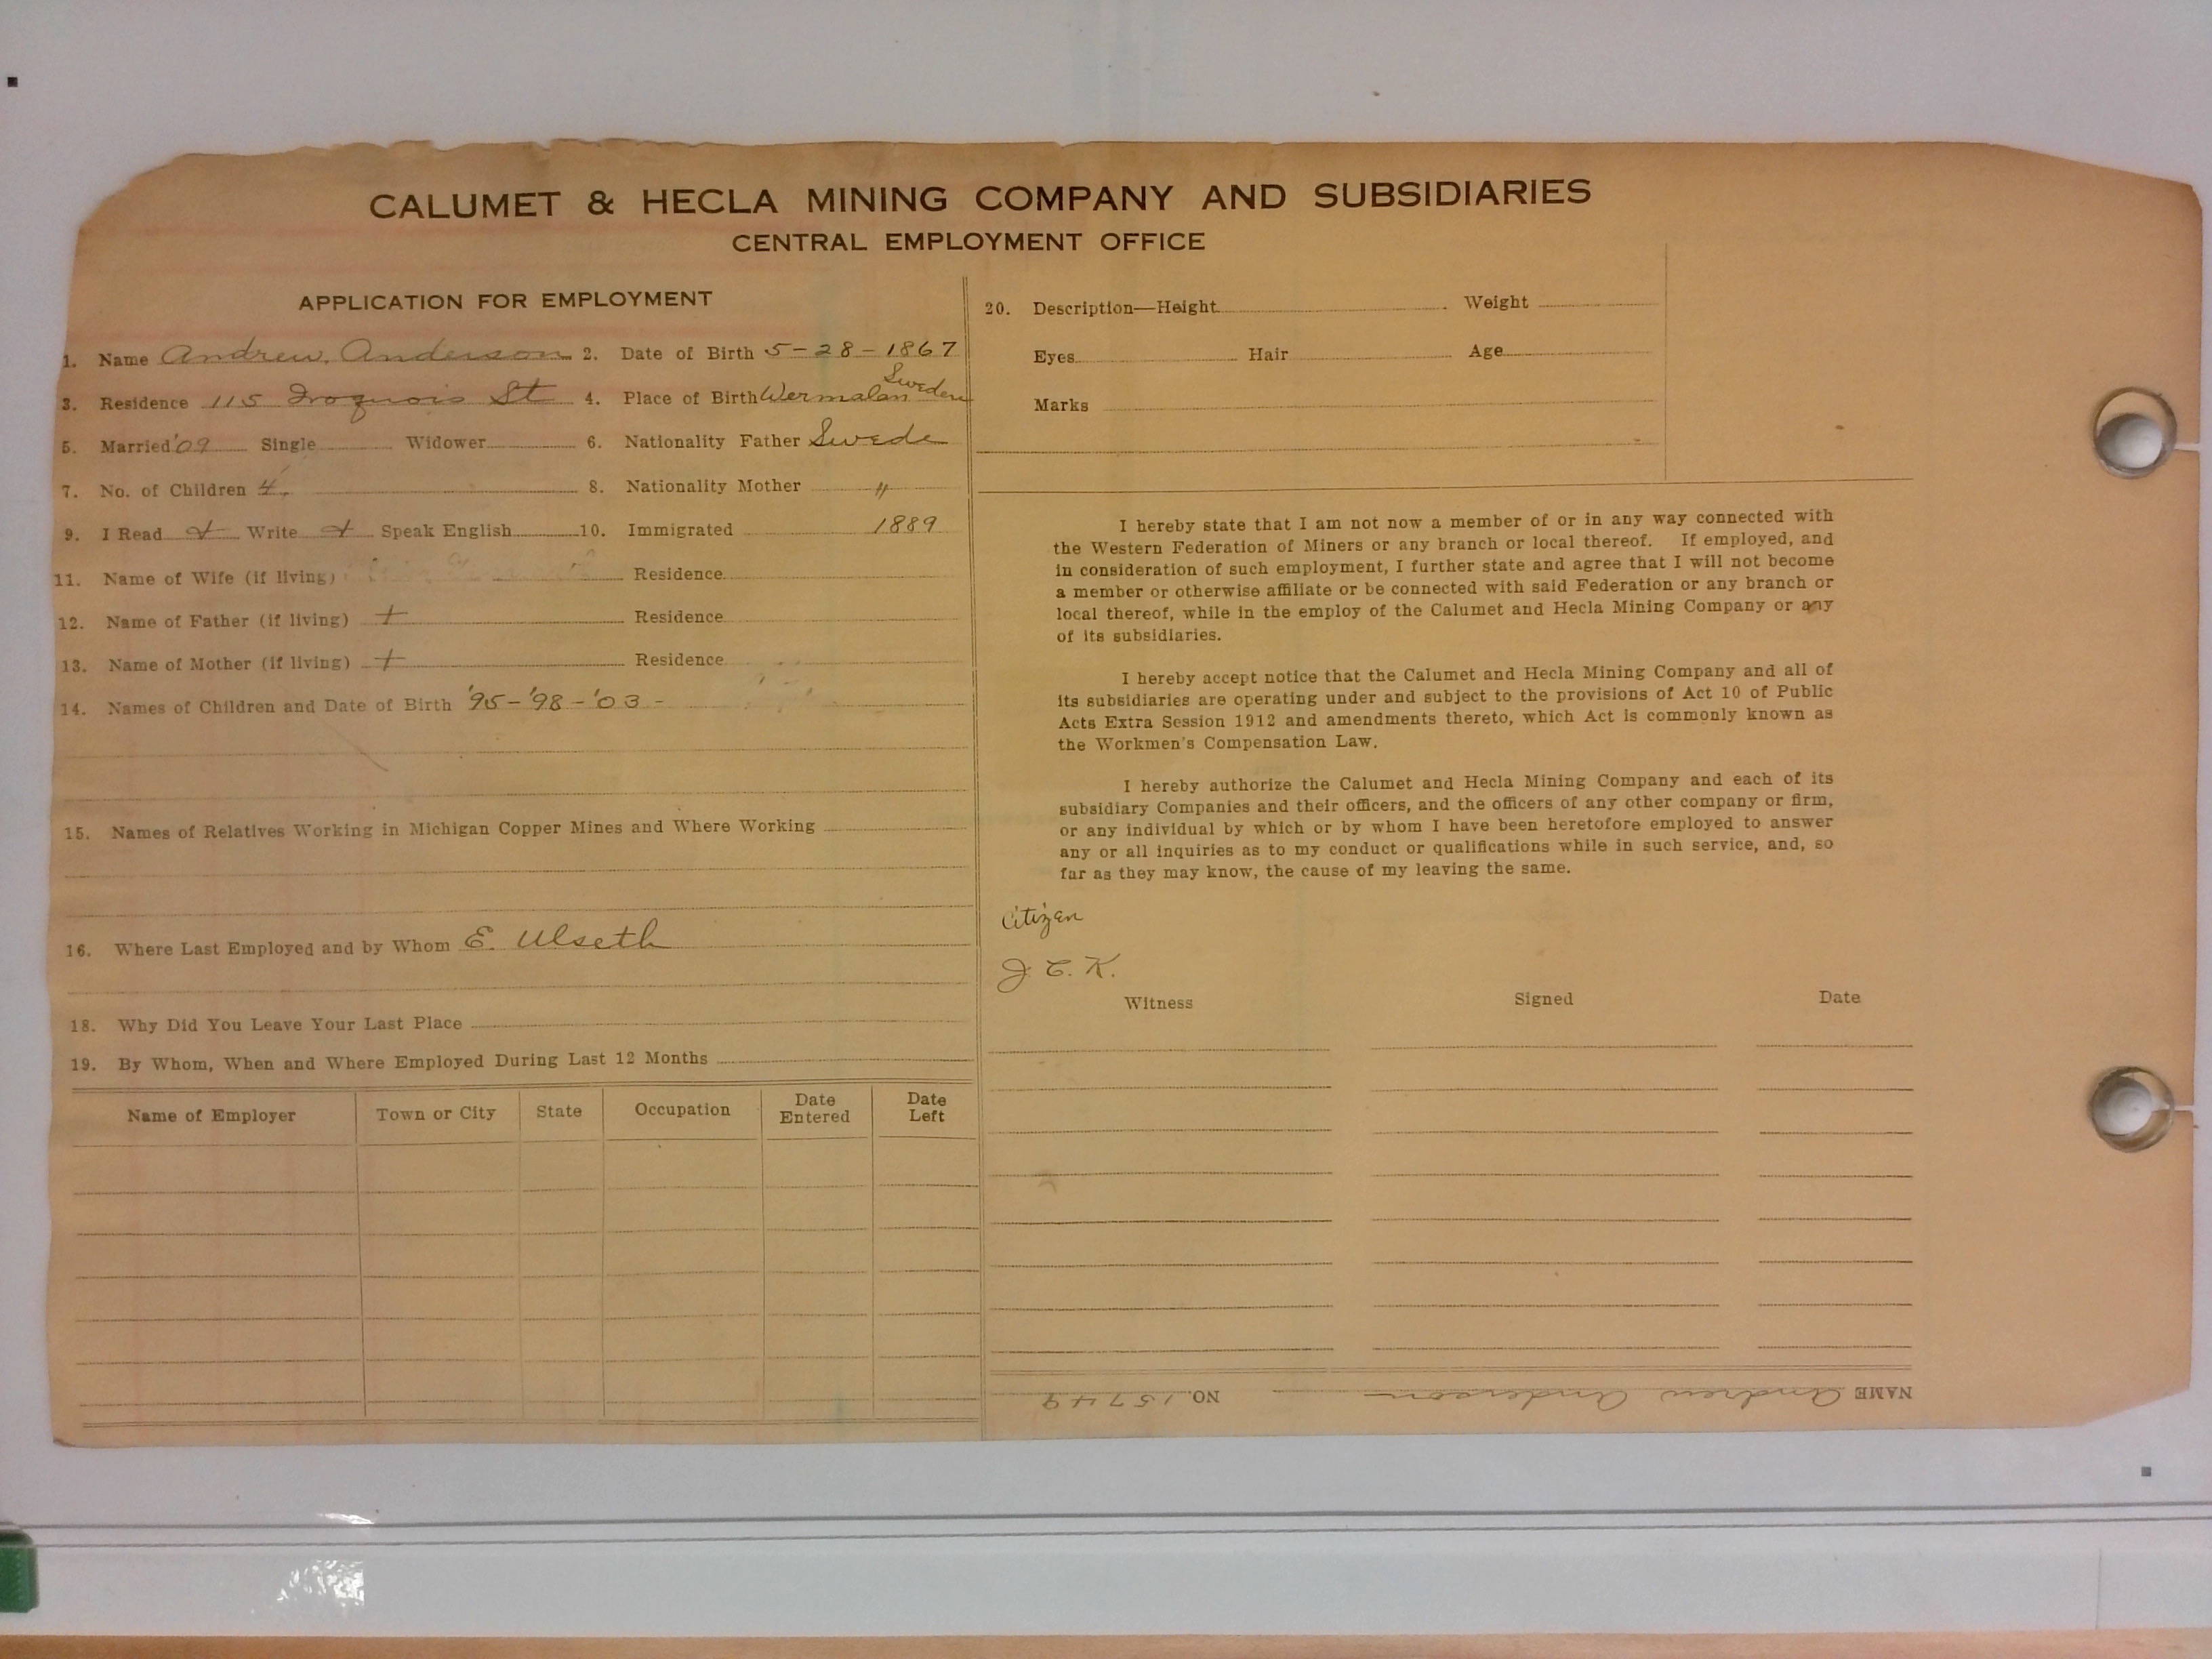 CALUMET & HECLA MINING COMPANY AND SUBSIDIARIES
CENTRAL EMPLOYMENT OFFICE
APPLICATION FOR EMPLOYMENT
1. Name Andrew Anderson 2. Date of Birth 5-28-1867
3. Residence 115 Iroquois St 4. Place of Birth Wermalan Sweden
5. Married '09 Single Widower 6. Nationality Father Swede
7. No. of Children 4. 8. Nationality Mother "
9. I Read Write Speak English 10. Immigrated 1889
11. Name of Wife (if living) Residence
12. Name of Father (if living) + Residence
13. Name of Mother (if living) + Residence
14. Names of Children and Date of Birth '95-'98-'03-
15. Names of Relatives Working in Michigan Copper Mines and Where Working
16. Where Last Employed and by Whom E. Ulseth
18. Why Did You Leave Your Last Place
19. By Whom, When and Where Employed During Last 12 Months
Name of Employer Town or City State Occupation Date Entered Date Left
20. Description—Height Weight
Eyes Hair Age
Marks
I hereby state that I am not now a member of or in any way connected with
the Western Federation of Miners or any branch or local thereof. If employed, and
in consideration of such employment, I further state and agree that I will not become
a member or otherwise affiliate or be connected with said Federation or any branch or
local thereof, while in the employ of the Calumet and Hecla Mining Company or any
of its subsidiaries.
I hereby accept notice that the Calumet and Hecla Mining Company and all of
its subsidiaries are operating under and subject to the provisions of Act 10 of Public
Acts Extra Session 1912 and amendments thereto, which Act is commonly known as
the Workmen's Compensation Law.
I hereby authorize the Calumet and Hecla Mining Company and each of its
subsidiary Companies and their officers, and the officers of any other company or firm,
or any individual by which or by whom I have been heretofore employed to answer
any or all inquiries as to my conduct or qualifications while in such service, and, so
far as they may know, the cause of my leaving the same.
Citizen
J. C. K.
Witness Signed Date
NAME Andrew Anderson NO. 15749